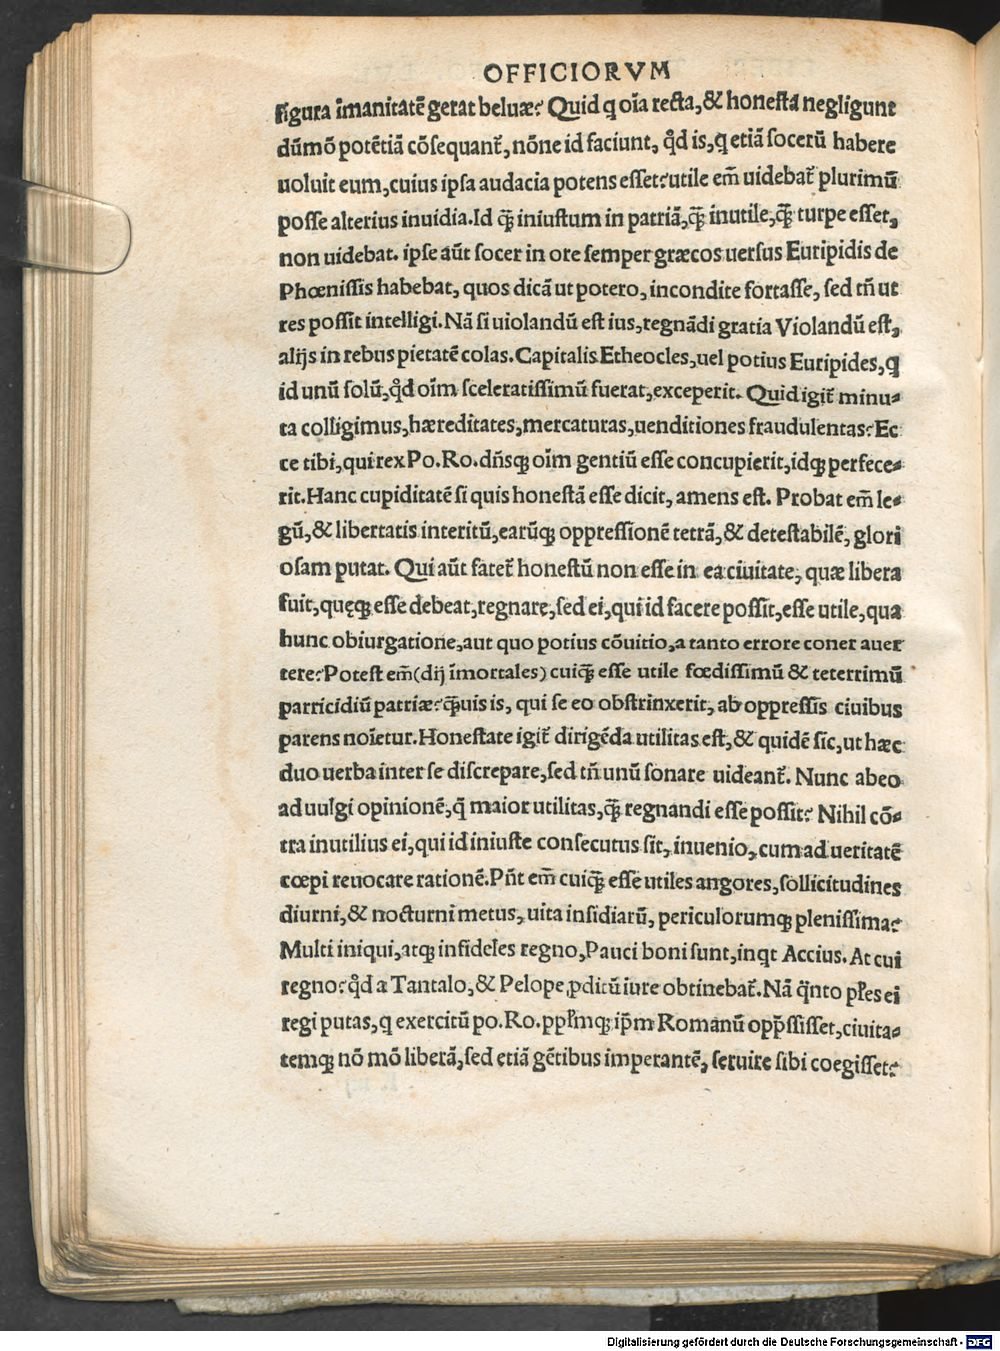 OFFICIORVM
figura īmanitatē gerat beluæ? Quid q̱ oīa recta, & honesta negligunt
dūmō potētiā cōsequant᷑, nōne id faciunt, qd̉ is, q̱ etiā socerū habere
uoluit eum, cuius ipsa audacia potens esset? utile em̄ uidebat᷑ plurimū
posse alterius inuidia. Id q̄ꝫ iniustum in patriā, q̄ꝫ inutile, q̄ꝫ turpe esset,
non uidebat. ipse aūt socer in ore semper græcos uersus Euripidis de
Phœnissis habebat, quos dicā ut potero, incondite fortasse, sed tn̄ ut
res possit intelligi. Nā si uiolandū est ius, regnādi gratia Violandū est,
alijs in rebus pietatē colas. Capitalis Etheocles, uel potius Euripides, q̱
id unū solū, qd̉ oīm sceleratissimū fuerat, exceperit. Quid igit᷑ minu-
ta colligimus, hæreditates, mercaturas, uenditiones fraudulentas? Ec
ce tibi, qui rex Po. Ro. dn̄sqꝫ oīm gentiū esse concupierit, idqꝫ perfece-
rit. Hanc cupiditatē si quis honestā esse dicit, amens est. Probat em̄ le-
gū, & libertatis interitū, earūqꝫ oppressionē tetrā, & detestabilē, glori
osam putat. Qui aūt fatet᷑ honestū non esse in ea ciuitate, quæ libera
fuit, quęqꝫ esse debeat, regnare, sed ei, qui id facere possit, esse utile, qua
hunc obiurgatione, aut quo potius cōuitio, a tanto errore coner auer
tere? Potest em̄ (dij īmortales) cuiq̄ꝫ esse utile fœdissimū & teterrimū
parricidiū patriæ? q̄ꝫuis is, qui se eo obstrinxerit, ab oppressis ciuibus
parens noīetur. Honestate igit᷑ dirigēda utilitas est, & quidē sic, ut hæc
duo uerba inter se discrepare, sed tn̄ unū sonare uideant᷑. Nunc abeo
ad uulgi opinionē, q̄ maior utilitas, q̄ꝫ regnandi esse possit? Nihil cō-
tra inutilius ei, qui id iniuste consecutus sit, inuenio, cum ad ueritatē
cœpi reuocare rationē. Pn̄t em̄ cuiq̄ꝫ esse utiles angores, sollicitudines
diurni, & nocturni metus, uita insidiarū, periculorumqꝫ plenissima?
Multi iniqui, atqꝫ infideles regno, Pauci boni sunt, inqt Accius. At cui
regno? qd̉ a Tantalo, & Pelope, ꝓditū iure obtinebat᷑. Nā q̄nto pl̄es ei
regi putas, q̱ exercitū po. Ro. ppl̄mqꝫ ip̄m Romanū opp̄ssisset, ciuita-
temqꝫ nō mō liberā, sed etiā gētibus imperantē, seruire sibi coegisset?
Digitalisierung gefördert durch die Deutsche Forschungsgemeinschaft - DFG